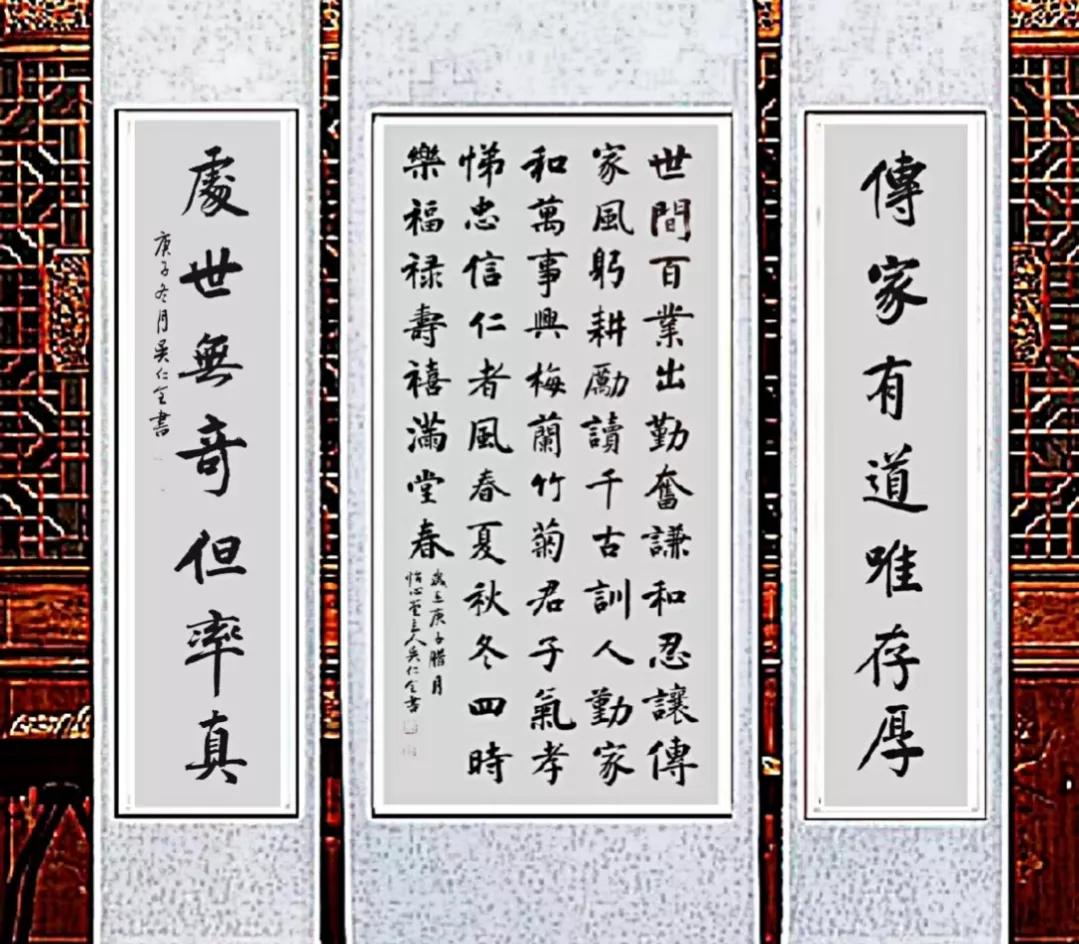 傳家有道唯存厚
世間百業出勤奮謙和忍讓傳
家風躬耕勵讀千古訓人勤家
和萬事興梅蘭竹菊君子氣孝
悌忠信仁者風春夏秋冬四時
樂福禄壽禧滿堂春
歲在庚子腊月
怡心堂主人吴仁全書
處世無奇但率真
庚子冬月吴仁全書